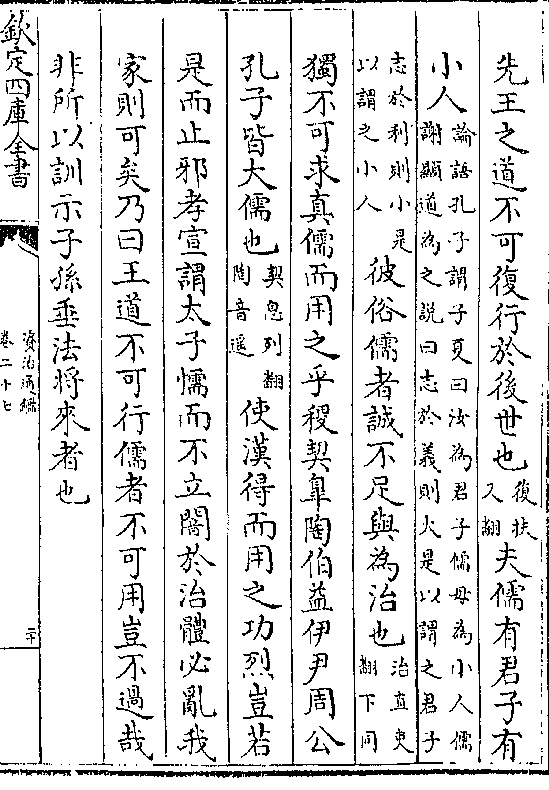 先王之道不可復行於後世也復扶又翻夫儒有君子有
小人論語孔子謂子夏曰汝為君子儒毋為小人儒謝顯道為之說曰志於義則大是以謂之君子
志於利則小是以謂之小人彼俗儒者誠不足與為治也治直吏翻下同
獨不可求真儒而用之乎稷契臯陶伯益伊尹周公
孔子皆大儒也契息列翻陶音遥使漢得而用之功烈豈若
是而止邪孝宣謂太子懦而不立闇於治體必亂我
家則可矣乃曰王道不可行儒者不可用豈不過哉
非所以訓示子孫垂法將來者也
欽定四庫全書
資治通鑑
卷二十七